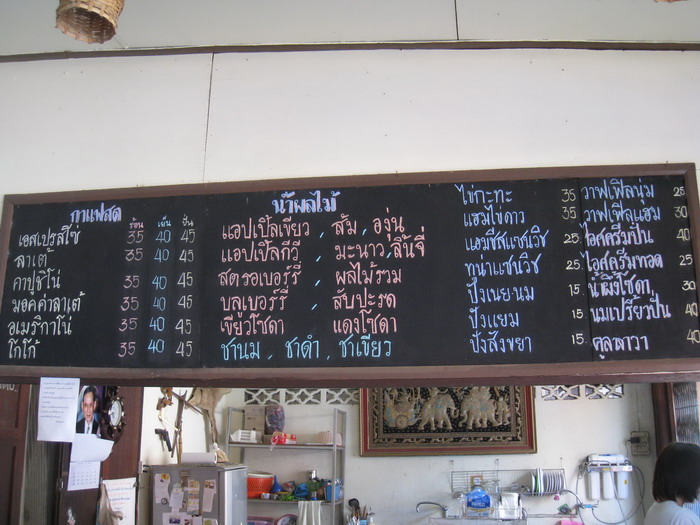 กาแฟสด
ร้อน เย็น ปั่น
เอสเปรสโซ่ 35 40 45
ลาเต้ 35 40 45
คาปูชิโน่ 35 40 45
มอคค่าลาเต้ 35 40 45
อเมริกาโน่ 35 40 45
โกโก้ 35 40 45
น้ำผลไม้
แอปเปิ้ลเขียว , ส้ม , องุ่น
แอปเปิ้ลกีวี , มะนาว, ลิ้นจี่
สตรอเบอร์รี่ , ผลไม้รวม
บลูเบอร์รี่ , สับปะรด
เขียวโซดา แดงโซดา
ชานม , ชาดำ , ชาเขียว
ไข่กะทะ 35
แฮมไข่ดาว 35
แฮมชีสแซนวิช 25
ทูน่าแซนวิช 25
ปังเนยนม 15
ปังแยม 15
ปังสังขยา 15
วาฟเฟิลนุ่ม 25
วาฟเฟิลแฮม 30
ไอศครีมปั่น 40
ไอศครีมทอด 25
น้ำผึ้งโซดา 30
นมเปรี้ยวปั่น 40
คูลลาวา 40